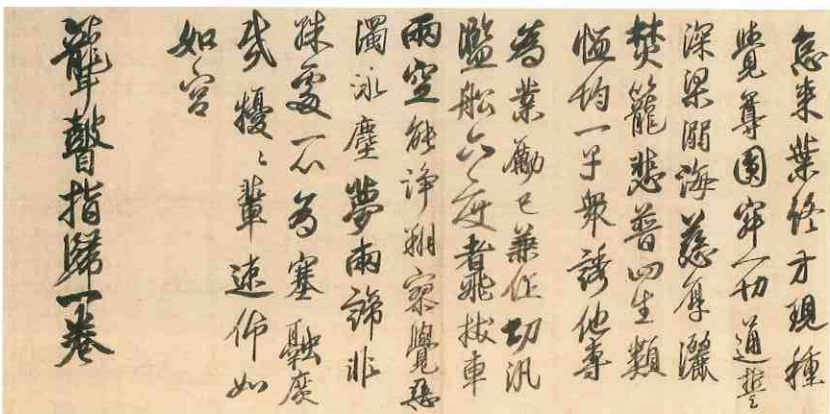 怠来葉終方現種
覺尊圓寂一切通誓
深梁溺海慈厚灑
焚籠悲普四生類
恤均一子衆誘他專
為業勵己兼作功汎
濫舩六度者飛抜車
兩空能淨翔寥覺惡
濁泳塵夢兩諦非
殊處一心為塞融庶
幾擾〻輩速仰如
如宮
聾瞽指歸一巻